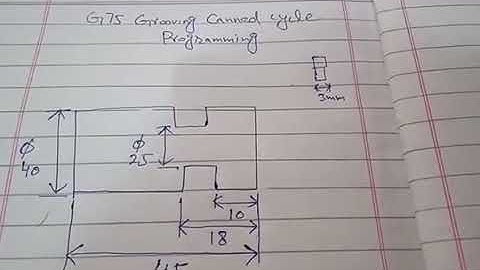 G75 Grooving Canned cycle
Programming
3mm
φ
40
φ
25
10
18